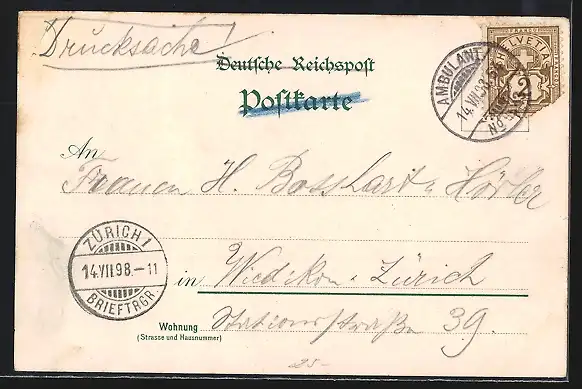 Drucksache!
Deutsche Reichspost
Postkarte
AMBULANT
14.VII.98
No
HELVETIA
2
An
Frauen H. Bosshart-Hörler
ZÜRICH 1
14.VII.98.-11
BRIEFTRGR.
in Wiedikon-Zürich
Wohnung Stationsstraße 39.
(Strasse und Hausnummer)